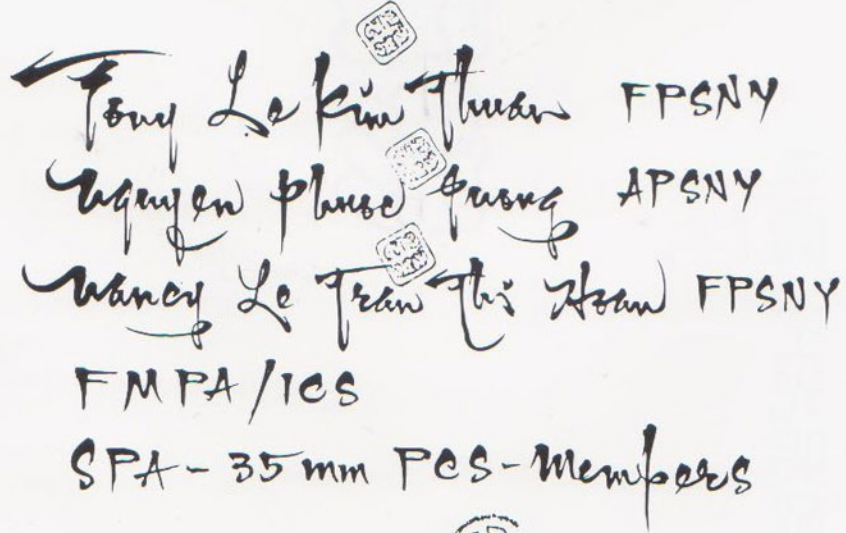 Tony Le Kim Thuan FPSNY
Nguyen Phuoc Quong APSNY
Nancy Le Tran Thi Hoan FPSNY
FMPA/ICS
SPA - 35mm PCS - Members